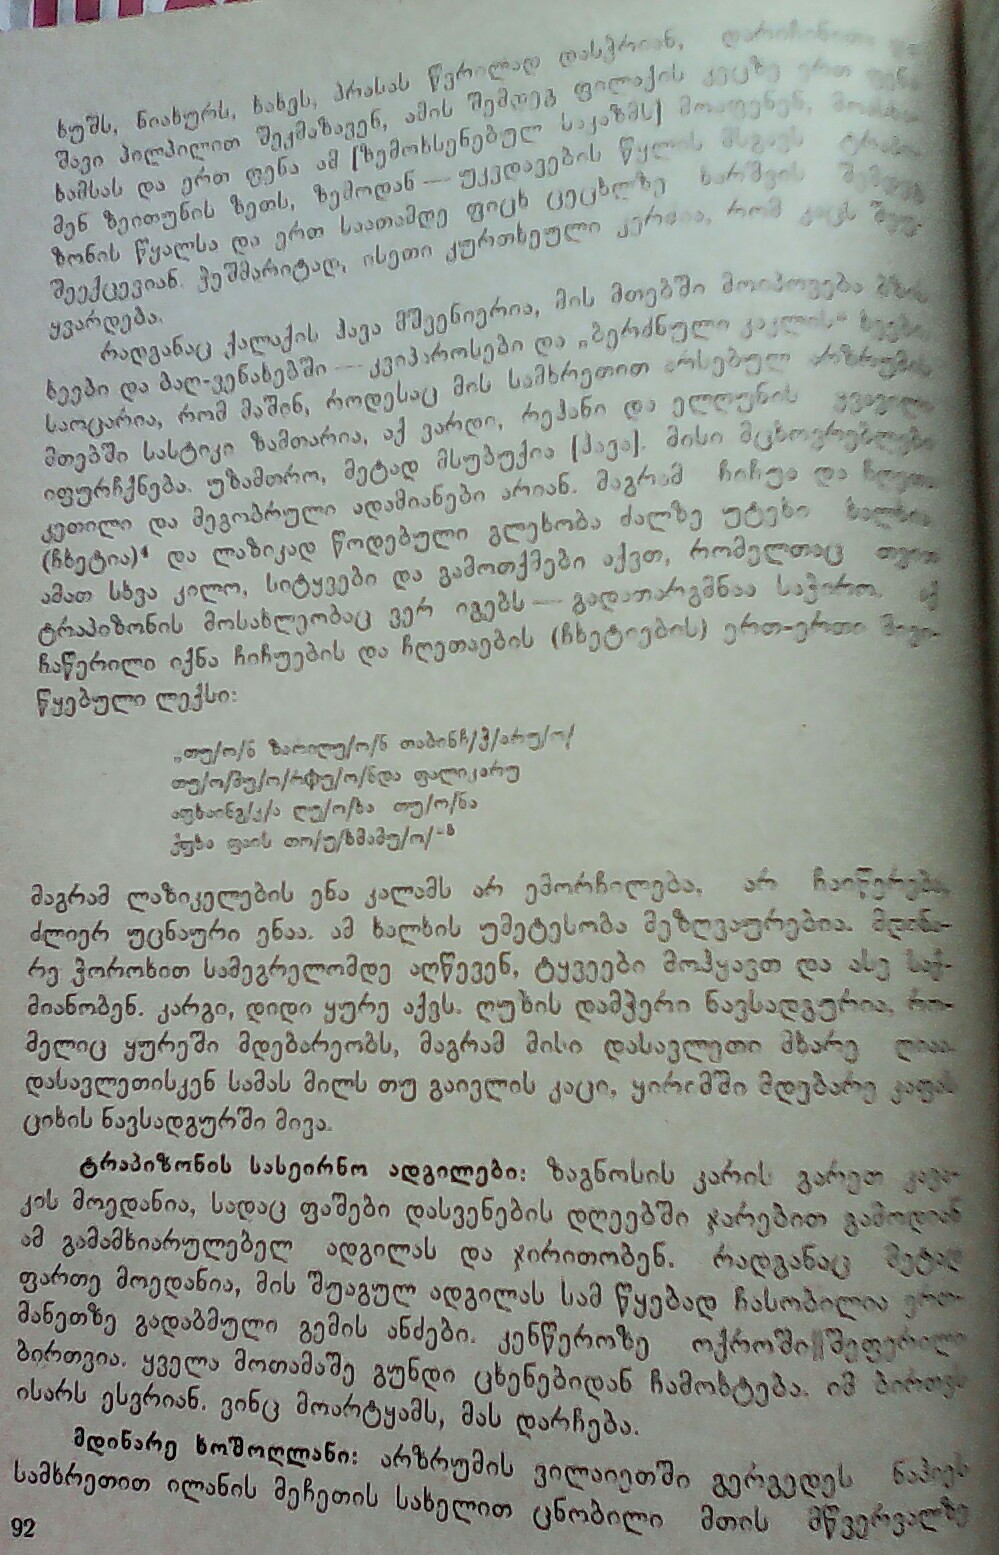 ხუშს, ნიახურს, ხახვს, პრასას წვრილად დასჭრიან, დარიჩინითა და
შავი პილპილით შეკმაზავენ, ამის შემდეგ ფილაქის კეცზე ერთ ფენა
ხამსას და ერთ ფენა ამ [ზემოხსენებულ საკაზმს] მოაფენენ,
მენ ზეითუნის ზეთს, ზემოდან — უკვდავების წყლის მსგავს ტრაპი-
ზონის წყალსა და ერთ საათამდე ფიცხ ცეცხლზე ხარშვის შემდეგ
შეექცევიან. ჭეშმარიტად, ისეთი კურთხეული კერძია, რომ კაცს შეუ-
ყვარდება.
რადგანაც ქალაქის ჰავა მშვენიერია, მის მთებში მოიპოვება ბზის
ხეები და ბაღ-ვენახებში — კვიპაროსები და „ბერძნული კაკლის“ ხეები.
საოცარია, რომ მაშინ, როდესაც მის სამხრეთით არსებულ არზრუმის
მთებში სასტიკი ზამთარია, აქ ვარდი, რეჰანი და ელღუნის ყვავილი
იფურჩქნება. უზამთრო, მეტად მსუბუქია [ჰავა]. მისი მცხოვრებლები
კეთილი და მეგობრული ადამიანები არიან. მაგრამ ჩიჩუა და ჩღეთა
(ჩხეტია)⁴ და ლაზიკად წოდებული გლეხობა ძალზე უტეხი ხალხია
ამათ სხვა კილო, სიტყვები და გამოთქმები აქვთ, რომელთაც თვით
ტრაპიზონის მოსახლეობაც ვერ იგებს — გადათარგმნაა საჭირო. აქ
ჩაწერილი იქნა ჩიჩუების და ჩღეთაების (ჩხეტიების) ერთ-ერთი მივი-
წყებული ლექსი:
„თუ/ო/ნ ზაოილუ/ო/ნ თაბინჩ/ჭ/არუ/ო/
თუ/ო/მუ/ო/რფუ/ო/ნდა ფალიკარუ
აფხაინგ/კ/ა ღუ/ო/ზა თუ/ო/ნა
ჭუზა ფაის თო/უ/ზმამუ/ო/“⁵
მაგრამ ლაზიკელების ენა კალამს არ ემორჩილება, არ ჩაიწერება,
ძლიერ უცნაური ენაა. ამ ხალხის უმეტესობა მეზღვაურებია. მდინა-
რე ჭოროხით სამეგრელომდე აღწევენ, ტყვეები მოჰყავთ და ასე საქ-
მიანობენ. კარგი, დიდი ყურე აქვს. ღუზის დამჭერი ნავსადგურია, რო-
მელიც ყურეში მდებარეობს, მაგრამ მისი დასავლეთი მხარე ღიაა.
დასავლეთისკენ სამას მილს თუ გაივლის კაცი, ყირიმში მდებარე კაფას
ციხის ნავსადგურში მივა.
ტრაპიზონის სასეირნო ადგილები: ზაგნოსის კარის გარეთ კავა-
კის მოედანია, სადაც ფაშები დასვენების დღეებში ჯარებით გამოდიან
ამ გამამხიარულებელ ადგილას და ჯირითობენ. რადგანაც მეტად
ფართე მოედანია, მის შუაგულ ადგილას სამ წყებად ჩასობილია ერთ-
მანეთზე გადაბმული გემის ანძები. კენწეროზე ოქროში შეფერილი
ბირთვია. ყველა მოთამაშე გუნდი ცხენებიდან ჩამოხტება. იმ ბირთვს
ისარს ესვრიან. ვინც მოარტყამს, მას დარჩება.
მდინარე ხოშოღლანი: არზრუმის ვილაიეთში გერგედეს ნაჰიეს
სამხრეთით ილანის მეჩეთის სახელით ცნობილი მთის მწვერვალზე
92